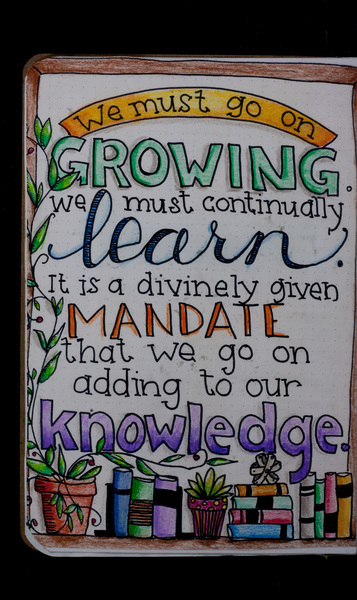 We must go on
GROWING.
we must continually
learn.
It is a divinely given
MANDATE
that we go on
adding to our
knowledge.